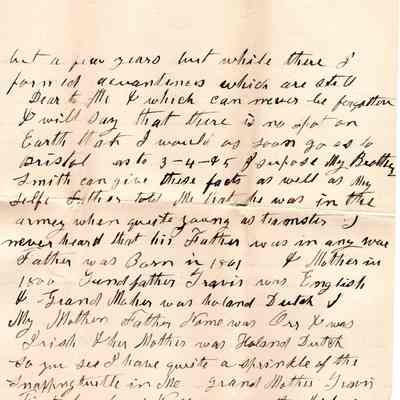 but a few years but while there I
formed acquantences which are still
Dear to Me & which can never be forgotten
& will say that there is no spot on
Earth that I would as soon go as to
Bristol as to 3-4-&5 I supose My Brother
Smith can give these facts as well as My
Self Father told Me that he was in the
armey when quite young as teamster I
never heard that his Father was in any war
Father was Born in 1801 & Mother in
1800 Grandfather Travis was English
& Grand Mother was holand Dutch &
My Mothers Father Name was Orr & was
Irish & her Mother was Holand Dutch
So you see I have quite a sprinkle of the
in Me Grand Mother Travis